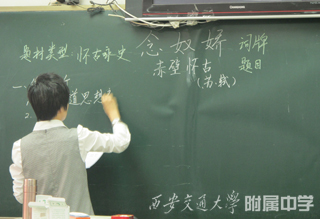 念奴娇 词牌
题材类型：怀古咏史 赤壁怀古 题目
(苏轼)
一、
1. 道思想
2.
西安交通大学附属中学